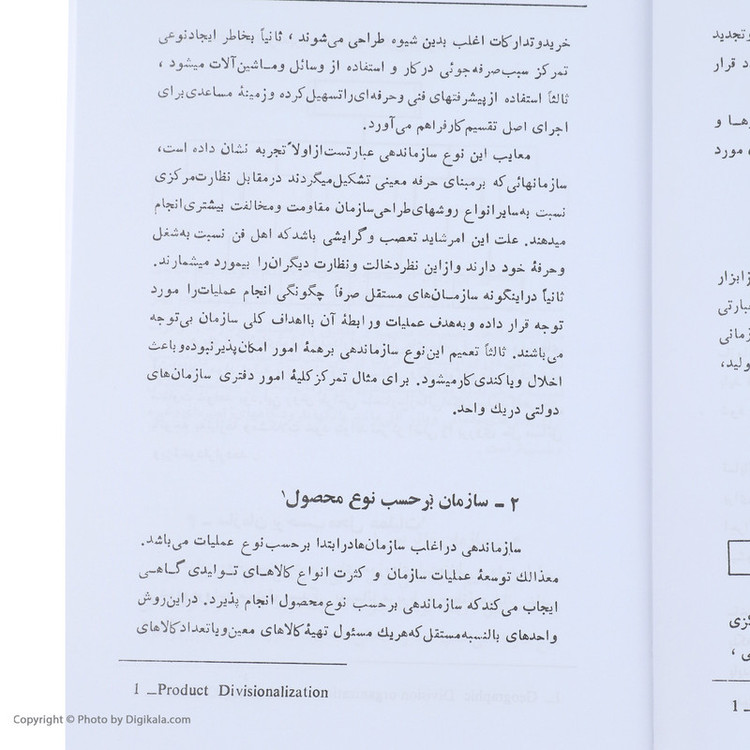 خریدوتدارکات اغلب بدین شیوه طراحی می‌شوند ، ثانیاً بخاطر ایجادنوعی
تمرکز سبب‌صرفه‌جوئی درکار و استفاده از وسائل ومـاشین‌آلات میشود ،
ثالثاً استفاده از پیشرفتهای فنی وحرفه‌ای‌راتسهیل‌کرده وزمینهٔ مساعدی‌برای
اجرای اصل تقسیم‌کارفراهم می‌آورد.
معایب این نوع سازماندهی عبارتست‌ازاولاً تجربه نشان داده است،
سازمانهائی‌که برمبنای حرفه معینی تشکیل‌میگردند درمقابل نظارت‌مرکزی
نسبت به‌سایرانواع روشهای‌طراحی‌سازمان مقاومت ومخالفت بیشتری‌انجام
میدهند. علت این امرشاید تعصب وگرایشی باشدکه اهل فن نسبت به‌شغل
وحرفهٔ خود دارند وازاین نظردخالت ونظارت دیگران‌را بیمورد میشمارند.
ثانیاً دراینگونه سازمـان‌های مستقل صرفاً چگونگی انجام عملیات‌را مورد
توجه قرار داده وبه‌هدف عملیات ورابطهٔ آن بااهداف کلی سازمان بی‌توجه
می‌باشند. ثالثاً تعمیم این‌نوع سازماندهی برهمهٔ امور امکان‌پذیرنبوده‌وباعث
اخلال ویاکندی‌کارمیشود. برای مثال تمرکزکلیهٔ امور دفتری سازمان‌های
دولتی دریك واحد.
۲ ـ سازمان برحسب نوع محصول۱
سازماندهی دراغلب سازمان‌هادرابتدا برحسب‌نوع عملیات می‌باشد.
معذالك توسعهٔ عملیات سازمان و کثرت انواع کالاهـای تـولیدی گـاهـی
ایجاب می‌کندکه سازماندهی برحسب نوع‌محصول انجام پذیرد. دراین‌روش
واحدهای بالنسبه‌مستقل‌که‌هریك مسئول تهیهٔ کالاهای معین‌ویاتعدادکالاهای
1 _Product Divisionalization
وتجدید
د قرار
وهـا و
مورد
زابزار
عبارتی
زمانی
ولید،
گزی
ی ،
1 _
Copyright © Photo by Digikala.com